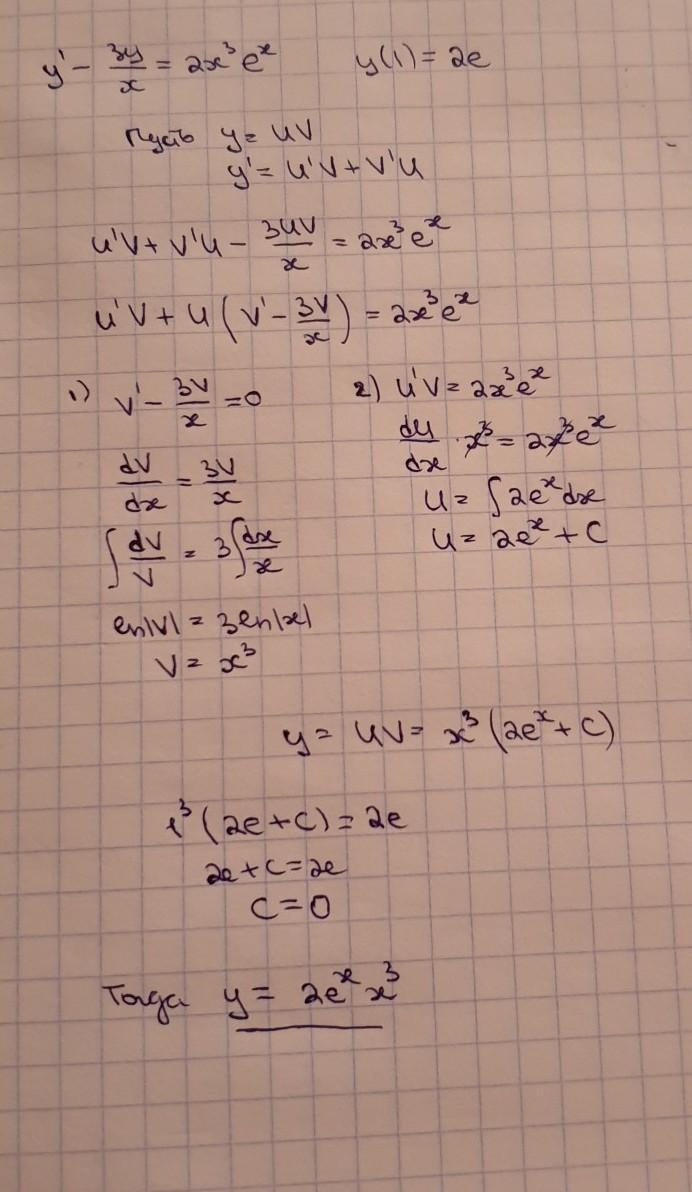 y' - 3y/x = 2x³eˣ y(1) = 2e
Пусть y = uv
y' = u'v + v'u
u'v + v'u - 3uv/x = 2x³eˣ
u'v + u(v' - 3v/x) = 2x³eˣ
1) v' - 3v/x = 0
dv/dx = 3v/x
∫dv/v = 3∫dx/x
ln|v| = 3ln|x|
v = x³
2) u'v = 2x³eˣ
du/dx · x³ = 2x³eˣ
u = ∫2eˣdx
u = 2eˣ + C
y = uv = x³(2eˣ + C)
1³(2e + C) = 2e
2e + C = 2e
C = 0
Тогда y = 2eˣx³